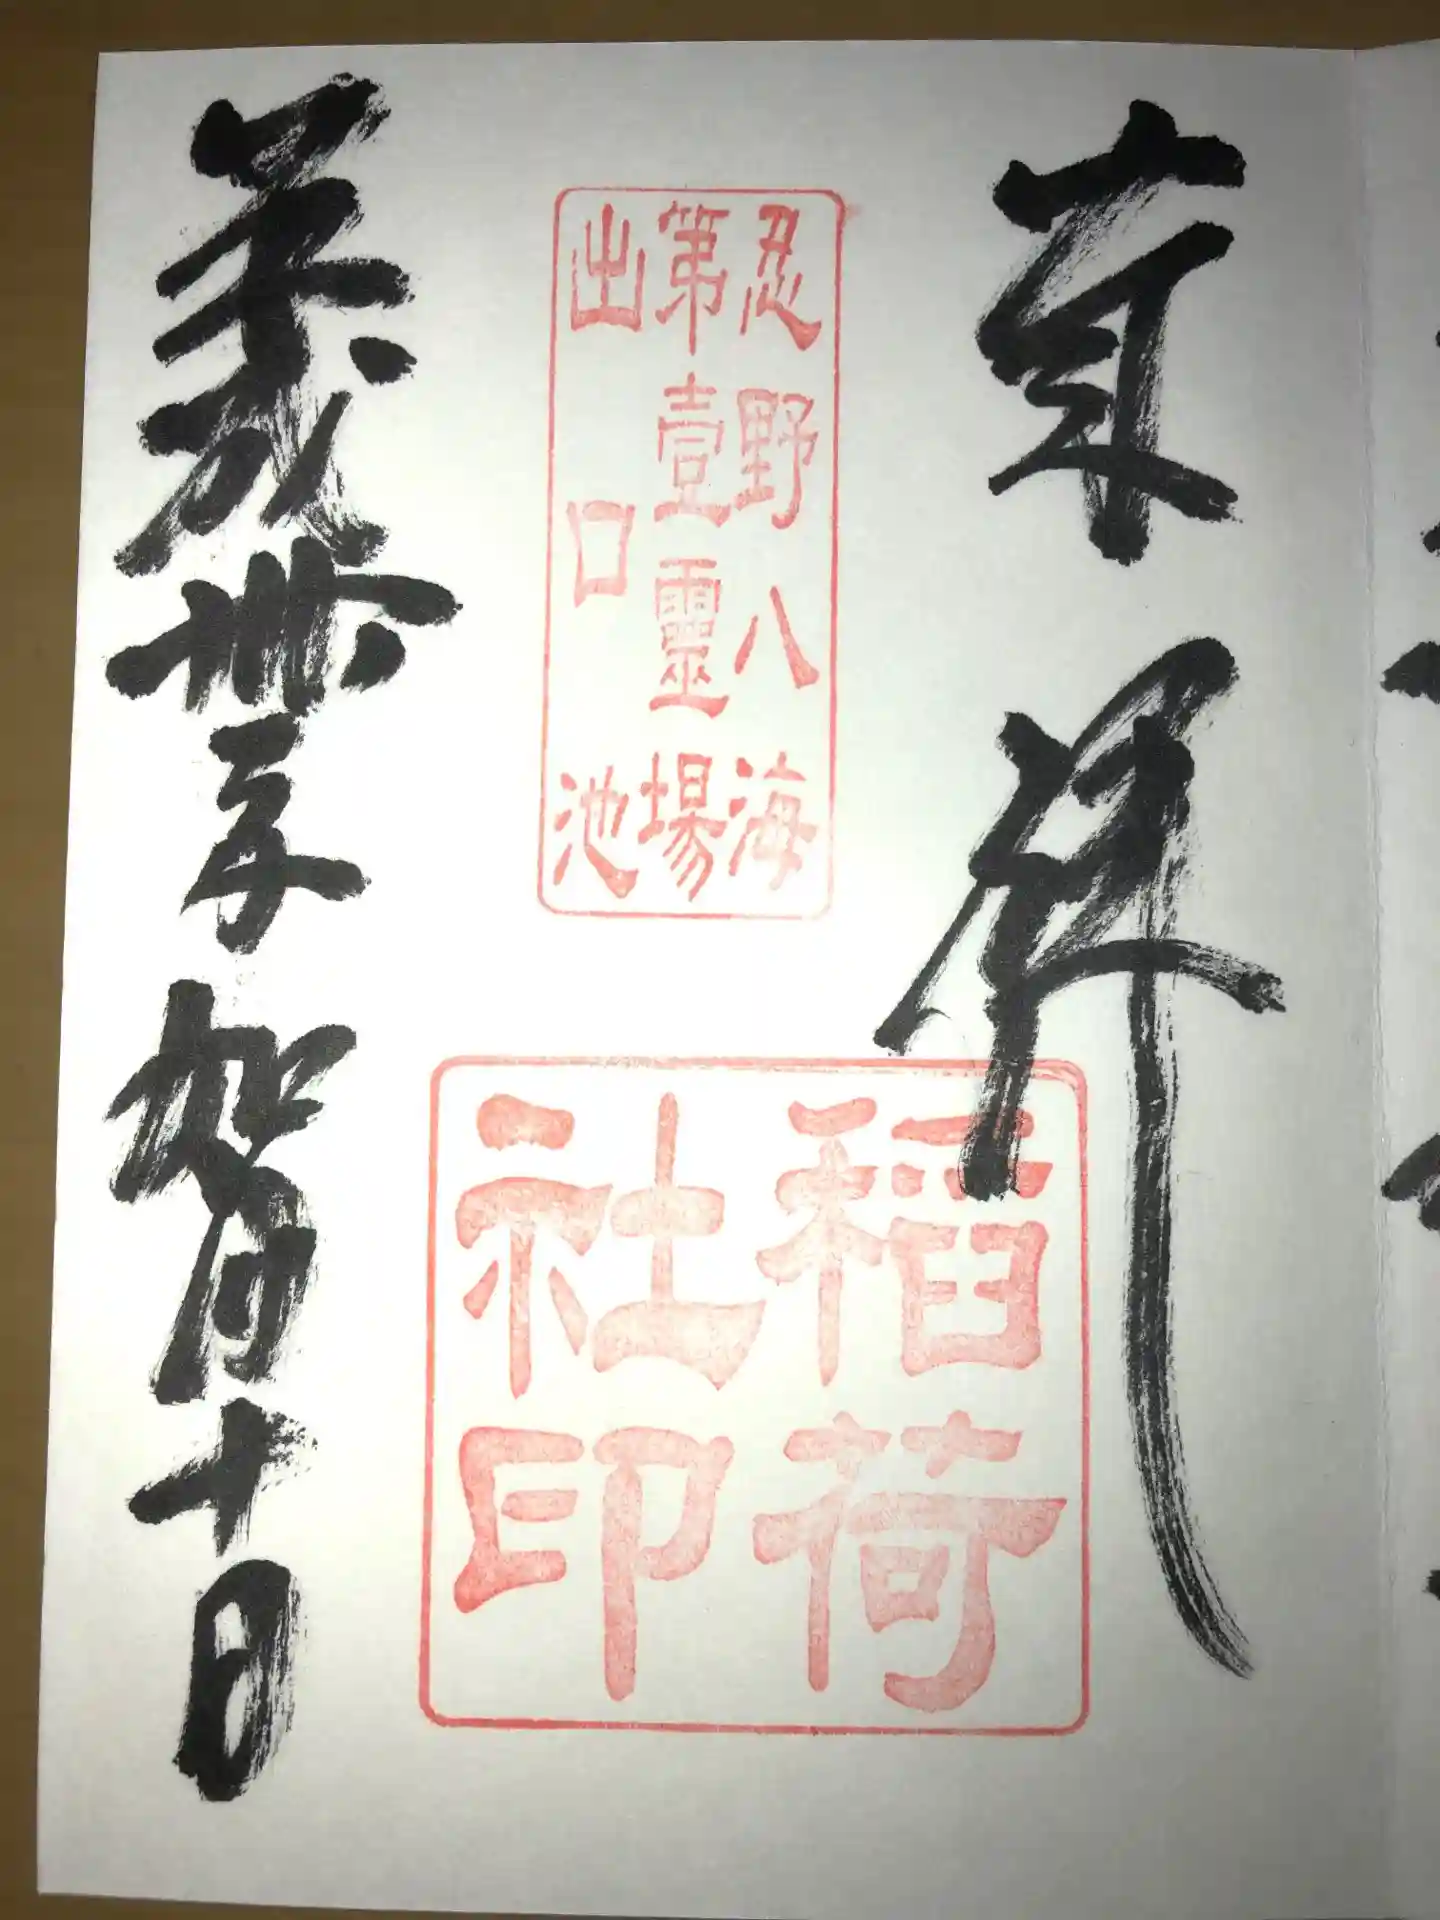 奉拝
忍野八海
第壹靈場
出口池
稲荷
社印
平成卅年如月十日